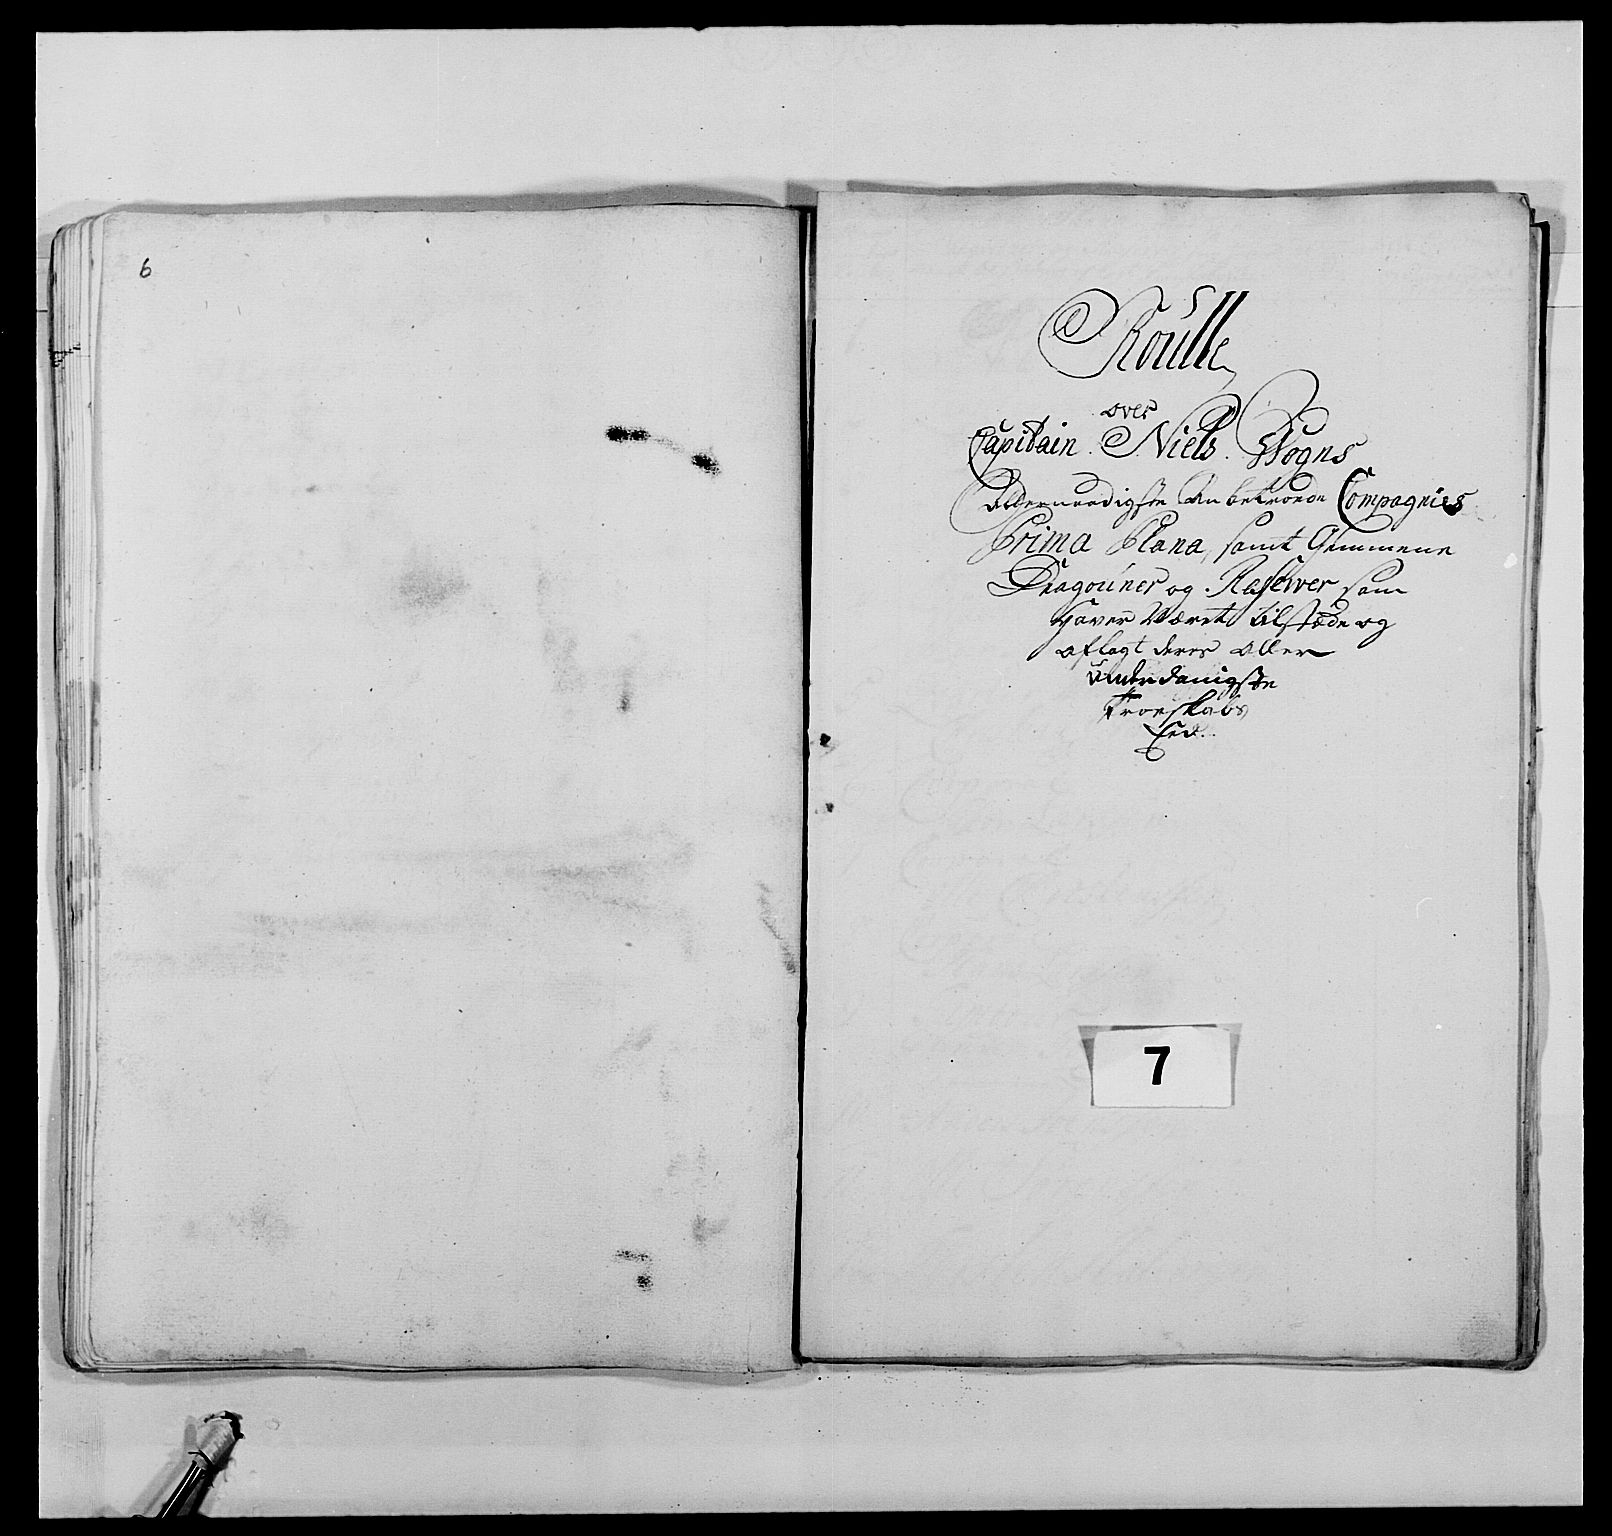 6
Roulle
over
Capitain Niels Wogns
Allernaadigste An betroede Compagnies
Prima Plana, samt Gemmene
Dragouner og Reserver som
haver Været tilstæde og
aflagt deres aller
Underdanigste
Troeskabs
Eed.
7